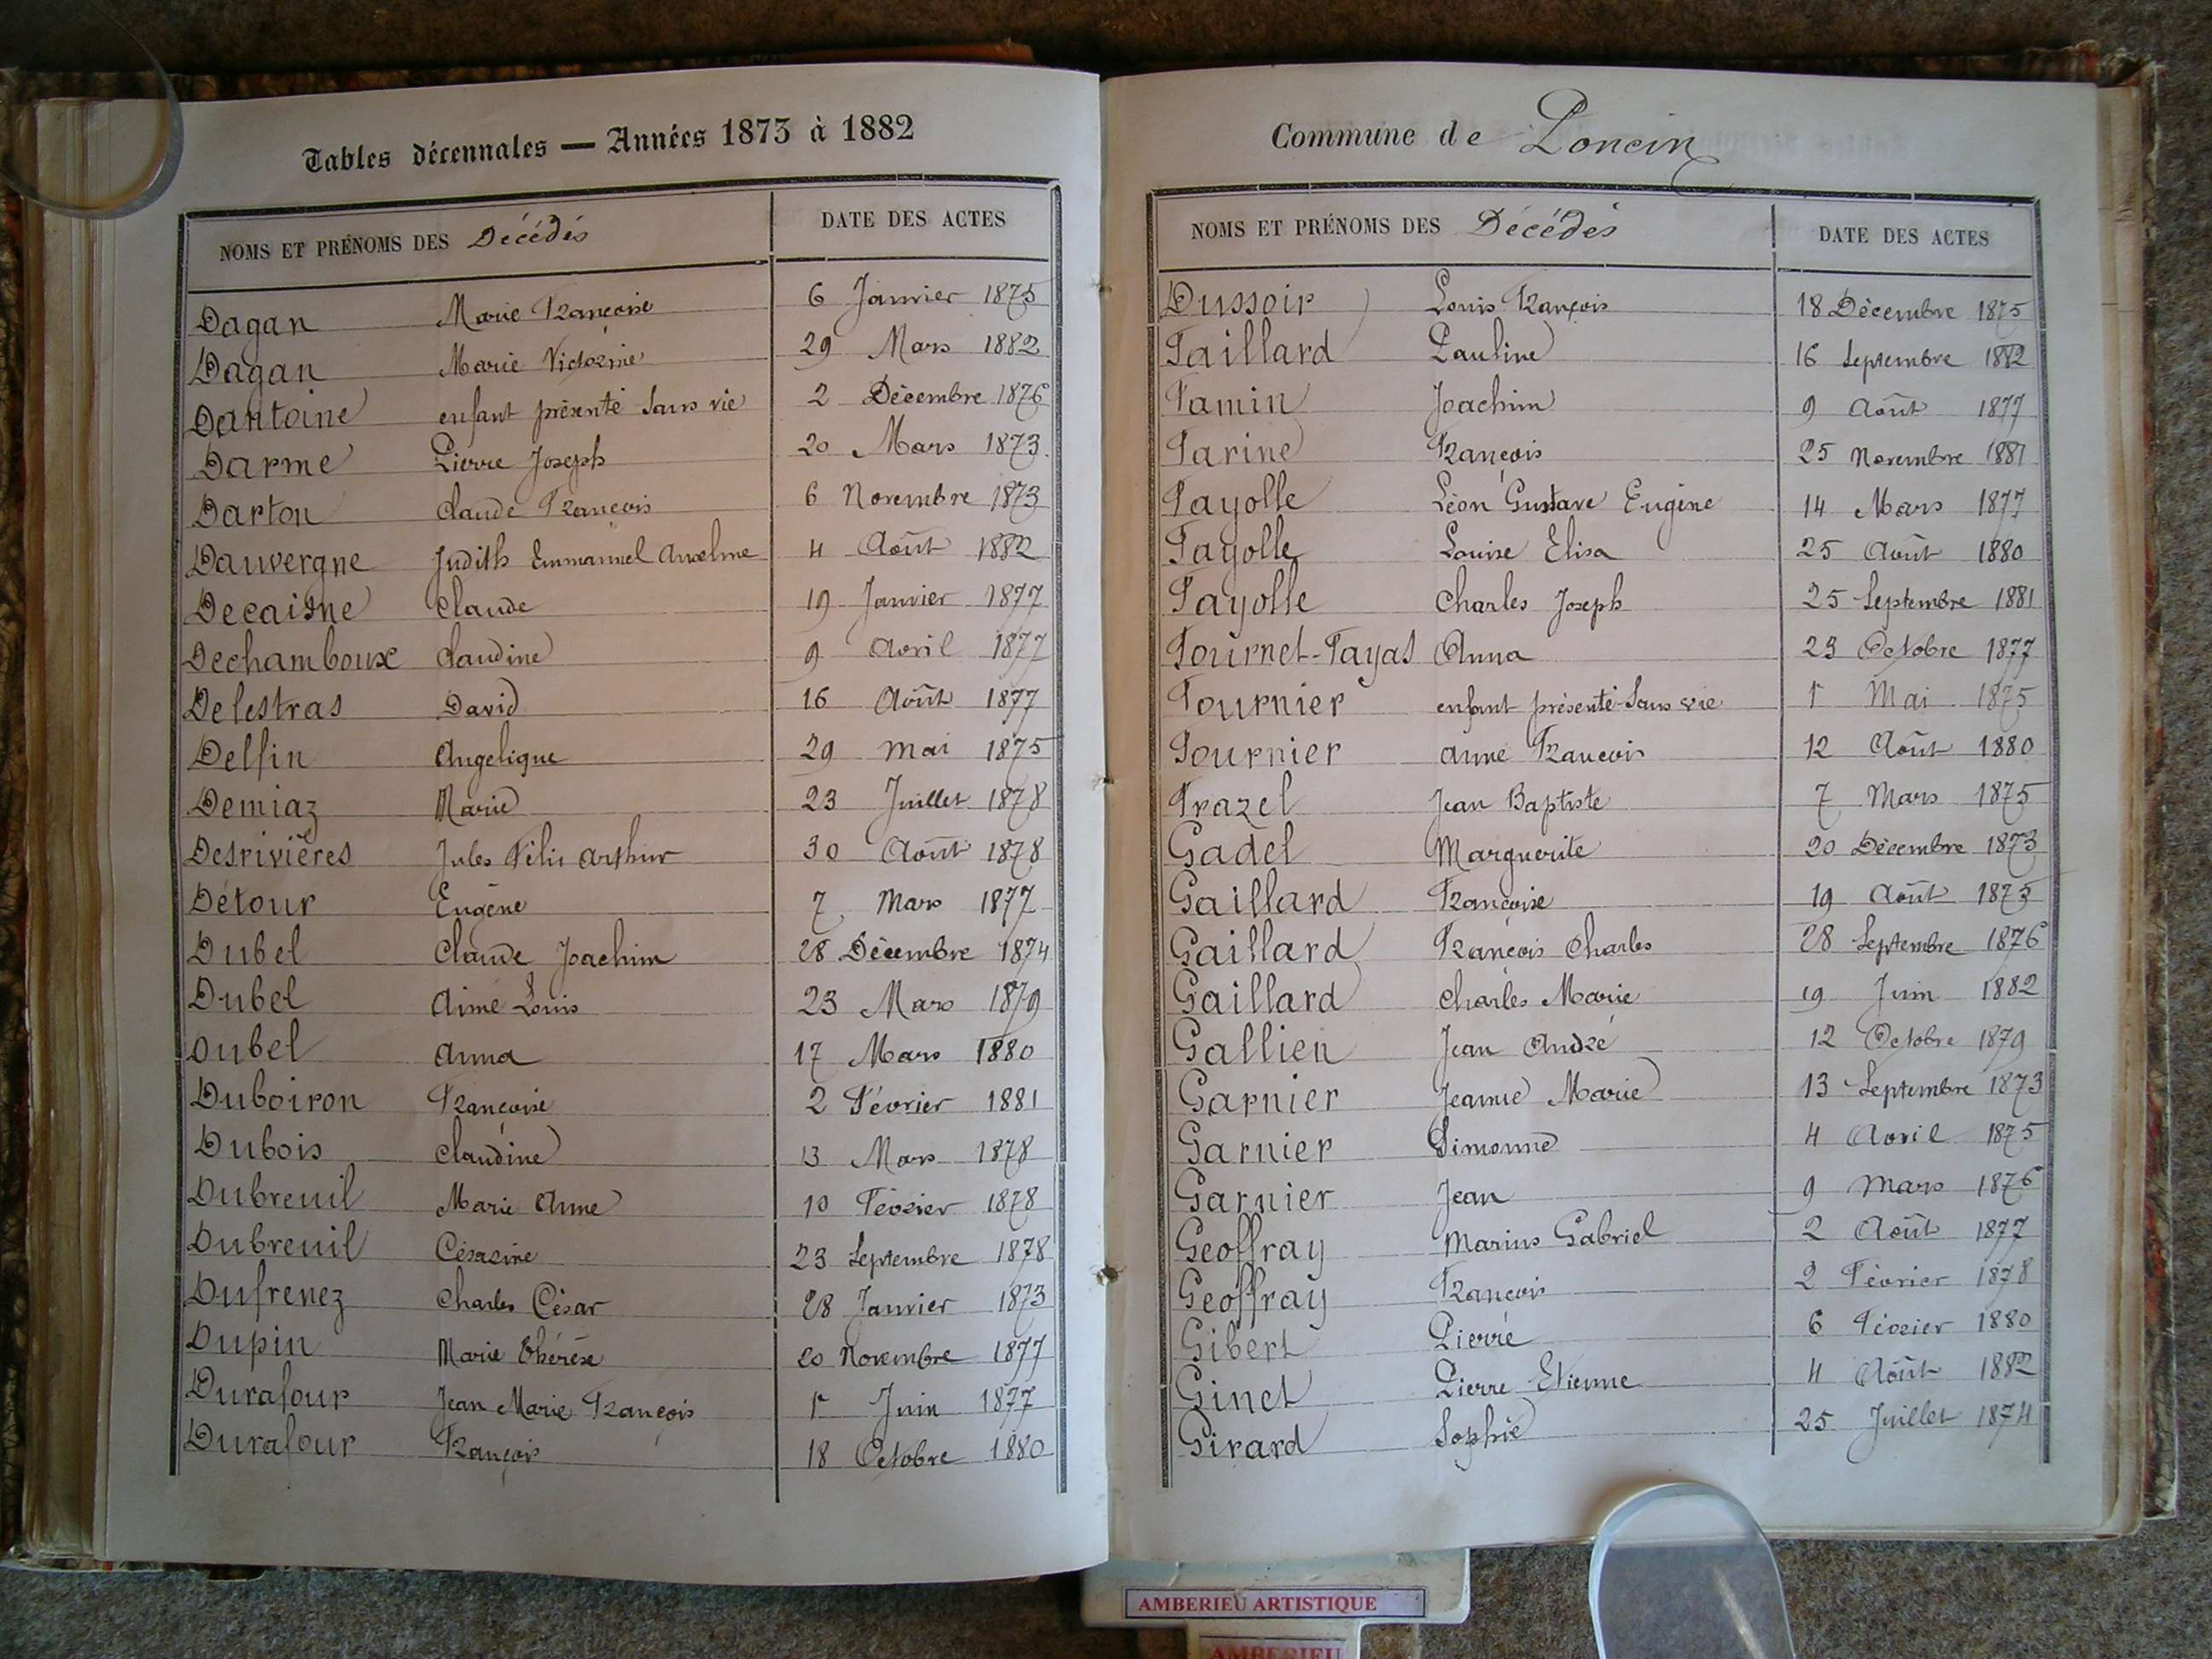 Tables décennales — Années 1873 à 1882
NOMS ET PRÉNOMS DES Décédés DATE DES ACTES
Dagan Marie Françoise 6 Janvier 1875
Dagan Marie Victorine 29 Mars 1882
Dantoine enfant présenté sans vie 2 Décembre 1876
Darme Pierre Joseph 20 Mars 1873
Darton Claude François 6 Novembre 1873
Dauvergne Judith Emmanuel Anselme 4 Août 1882
Decaisne Claude 19 Janvier 1877
Dechamboux Claudine 9 Avril 1877
Delestras David 16 Août 1877
Delfin Angelique 29 Mai 1875
Demiaz Marie 23 Juillet 1878
Desrivières Jules Félix Arthur 30 Août 1878
Détour Eugène 7 Mars 1877
Dubel Claude Joachim 28 Décembre 1874
Dubel Aimé Louis 23 Mars 1879
Dubel Anna 17 Mars 1880
Duboiron Françoise 2 Février 1881
Dubois Claudine 13 Mars 1878
Dubreuil Marie Anne 10 Février 1878
Dubreuil Césarine 23 Septembre 1878
Dufrenez Charles César 28 Janvier 1873
Dupin Marie Thérèse 20 Novembre 1877
Durafour Jean Marie François 1r Juin 1877
Durafour François 18 Octobre 1880
Commune de Poncin
NOMS ET PRÉNOMS DES Décédés DATE DES ACTES
Dussoir Louis François 18 Décembre 1875
Faillard Pauline 16 Septembre 1882
Famin Joachim 9 Août 1877
Farine François 25 Novembre 1881
Fayolle Léon Gustave Eugène 14 Mars 1877
Fayolle Louise Elisa 25 Août 1880
Fayolle Charles Joseph 25 Septembre 1881
Fournet-Fayas Anna 23 Octobre 1877
Fournier enfant présenté sans vie 1r Mai 1875
Fournier Anne François 12 Août 1880
Frazel Jean Baptiste 7 Mars 1875
Gadel Marguerite 20 Décembre 1873
Gaillard Françoise 19 Août 1875
Gaillard François Charles 28 Septembre 1876
Gaillard Charles Marie 19 Juin 1882
Gallien Jean André 12 Octobre 1879
Garnier Jeanne Marie 13 Septembre 1873
Garnier Simonne 4 Avril 1875
Garnier Jean 9 Mars 1876
Geoffray Marius Gabriel 2 Août 1877
Geoffray François 2 Février 1878
Gibert Pierre 6 Février 1880
Ginet Pierre Etienne 4 Août 1882
Girard Sophie 25 Juillet 1874
AMBERIEU ARTISTIQUE
AMBERIEU